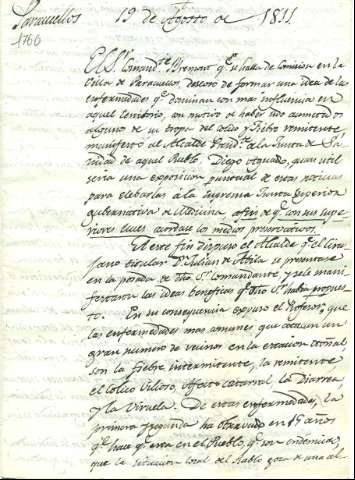 Paracuellos 19 de Agosto de 1811
1760
El Sr. Comandte. q.e se halla de comision en la
Villa de Paracuellos, deseoso de formar una idea de las
enfermedades q.e dominan con mas influencia en
aquel territorio, con motivo de haber sido acometidos
algunos de su tropa del colico y fiebre remitente
manifestó al Alcalde Presid.te de la Junta de Sa-
nidad de aquel Pueblo, Diego quan util
seria una exposicion puntual de estas noticias
para elebarlas á la Suprema Junta Superior
gubernativa de Medicina afin de q.e con sus supe-
riores luces acordase los medios preservativos.
A este fin dispuso el Alcalde q.e el Ciru-
jano titular Dn. Julian de Avila se presentase
en la posada de dho Sr. Comandante, y se le mani-
festaron las ideas beneficas q.e dho Sr. habia propues-
to. En su consequencia expuso el Profesor, que
las enfermedades mas comunes que atacan un
gran numero de vecinos en la estacion otoñal
son la fiebre intermitente, la remitente
el colico vilioso, afecto catarral, la Diarrea,
y la Viruela. De estas enfermedades, la
primera y segunda ha observado en 15 años
q.e hace q.e esta en el Pueblo, q.e son endemicas,
que la situacion local del Pueblo goza de una al